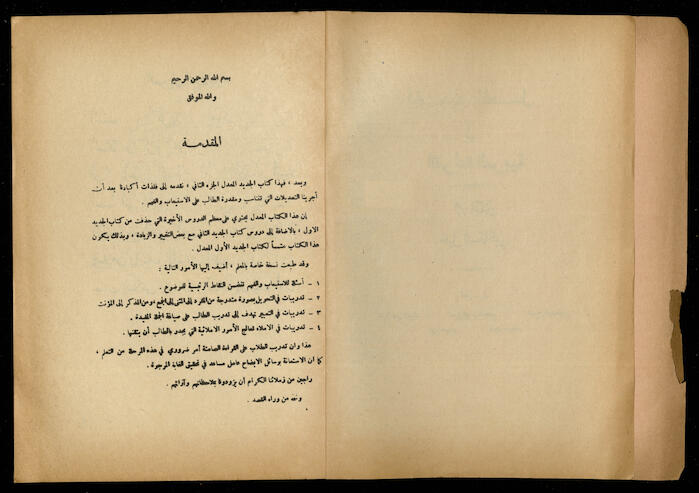 بسم الله الرحمن الرحيم
والله الموفق
المقدمة
وبعد ، فهذا كتاب الجديد المعدل الجزء الثاني ، نقدمه إلى فلذات أكبادنا بعد أن
أجرينا التعديلات التي تتناسب ومقدرة الطالب على الاستيعاب والفهم .
إن هذا الكتاب المعدل يحتوي على معظم الدروس الأخيرة التي حذفت من كتاب الجديد
الاول ، بالاضافة إلى دروس كتاب الجديد الثاني مع بعض التغيير والزيادة ، وبذلك يكون
هذا الكتاب متمماً لكتاب الجديد الأول المعدل .
وقد طبعت نسخة خاصة بالمعلم ، أضيف إليها الأمور التالية :
١ - أسئلة للاستيعاب والفهم تتضمن النقاط الرئيسية للموضوع .
٢ - تدريبات في التحويل بصورة متدرجة من المفرد إلى المثنى إلى الجمع ومن المذكر إلى المؤنث
٣ - تدريبات في التعبير تهدف إلى تدريب الطالب على صياغة الجمل المفيدة .
٤ - تدريبات في الاملاء تعالج الأمور الاملائية التي يجدر بالطالب أن يتقنها .
هذا وان تدريب الطلاب على القراءة الصامتة أمر ضروري في هذه المرحلة من التعلم ،
كما ان الاستعانة بوسائل الايضاح عامل مساعد في تحقيق الغاية الموجوة .
راجين من زملائنا الكرام أن يزودونا بملاحظاتهم وآرائهم .
والله من وراء القصد .